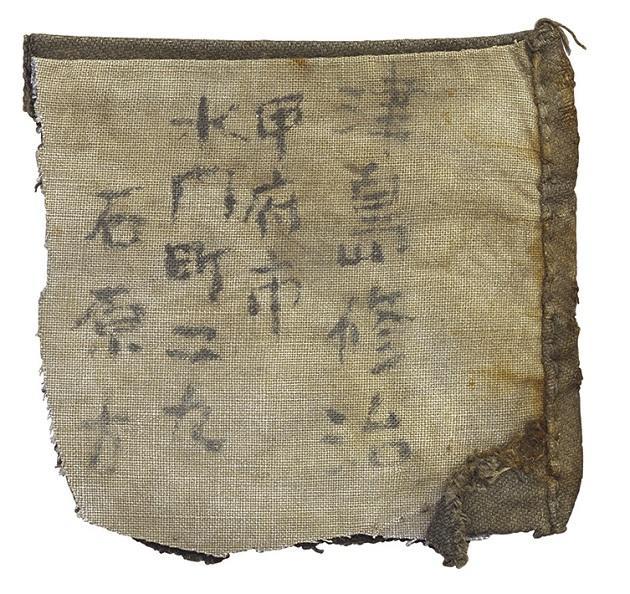 津島修治
甲府市
水門町二九
石原方